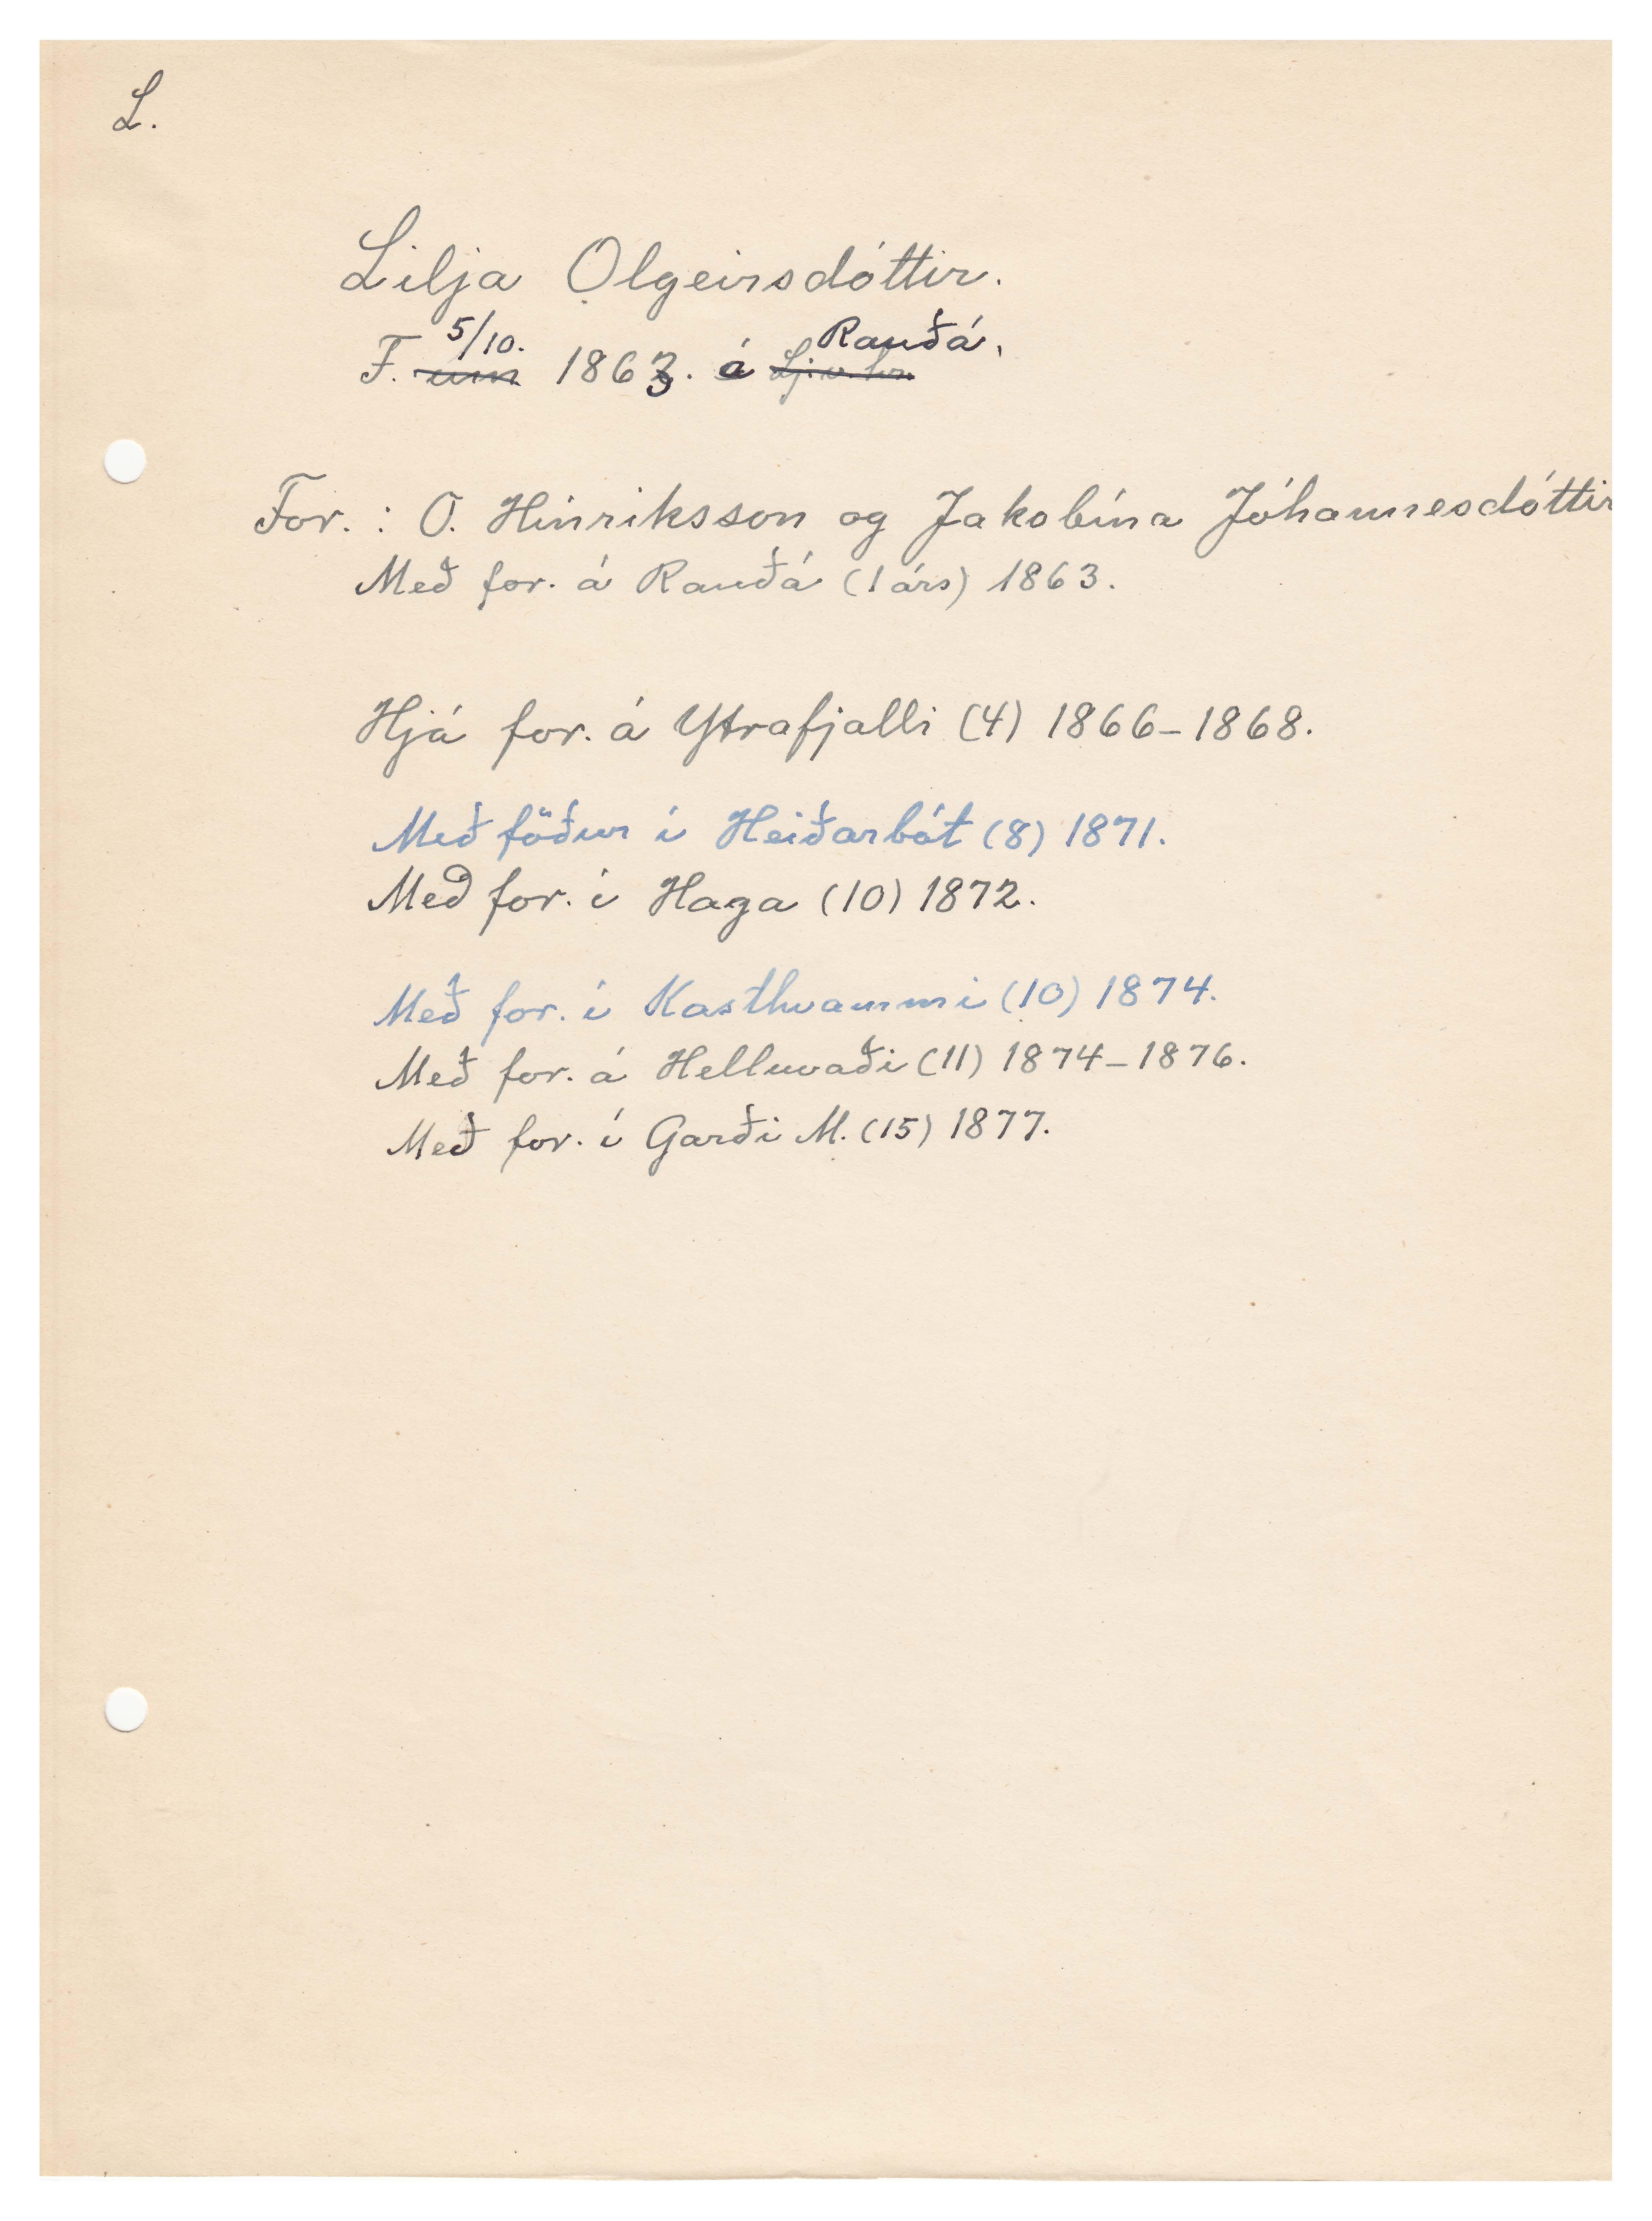 L.
Lilja Olgeirsdóttir.
5/10. Rauðá,
F. um 1863. á Lj.v.hr.
For. : O. Hinriksson og Jakobína Jóhannesdóttir
Með for. á Rauðá (1 árs) 1863.
Hjá for. á Ytrafjalli (4) 1866-1868.
Með föður í Heiðarbót (8) 1871.
Með for. í Haga (10) 1872.
Með for. í Kasthvammi (10) 1874.
Með for. á Helluvaði (11) 1874-1876.
Með for. í Garði M. (15) 1877.